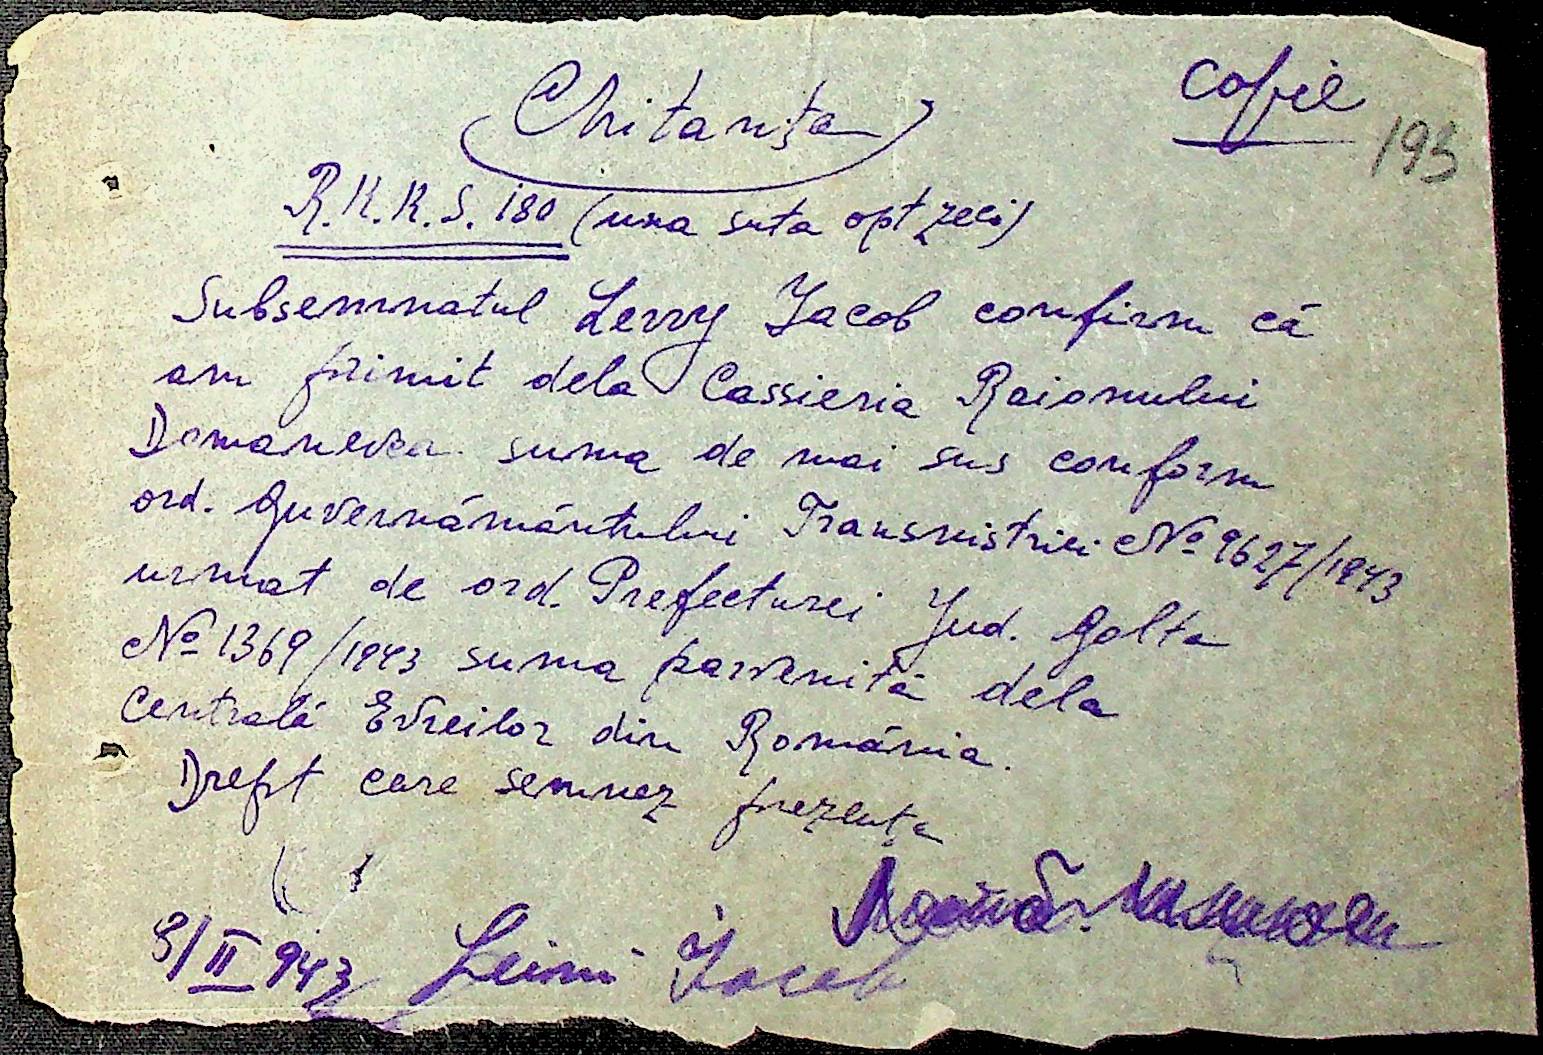 Copie
193
Chitanța
R.K.K.S. 180 (una suta optzeci)
Subsemnatul Levvy Jacob confirm că
am primit dela Cassieria Raionului
Domanevca suma de mai sus conform
ord. Guvernământului Transnistriei No 9627/1943
urmat de ord. Prefecturei Jud. Golta
No 1369/1943 suma parvenită dela
Centrală Evreilor din România.
Drept care semnez prezența
9/II 943 Leivi Jacob